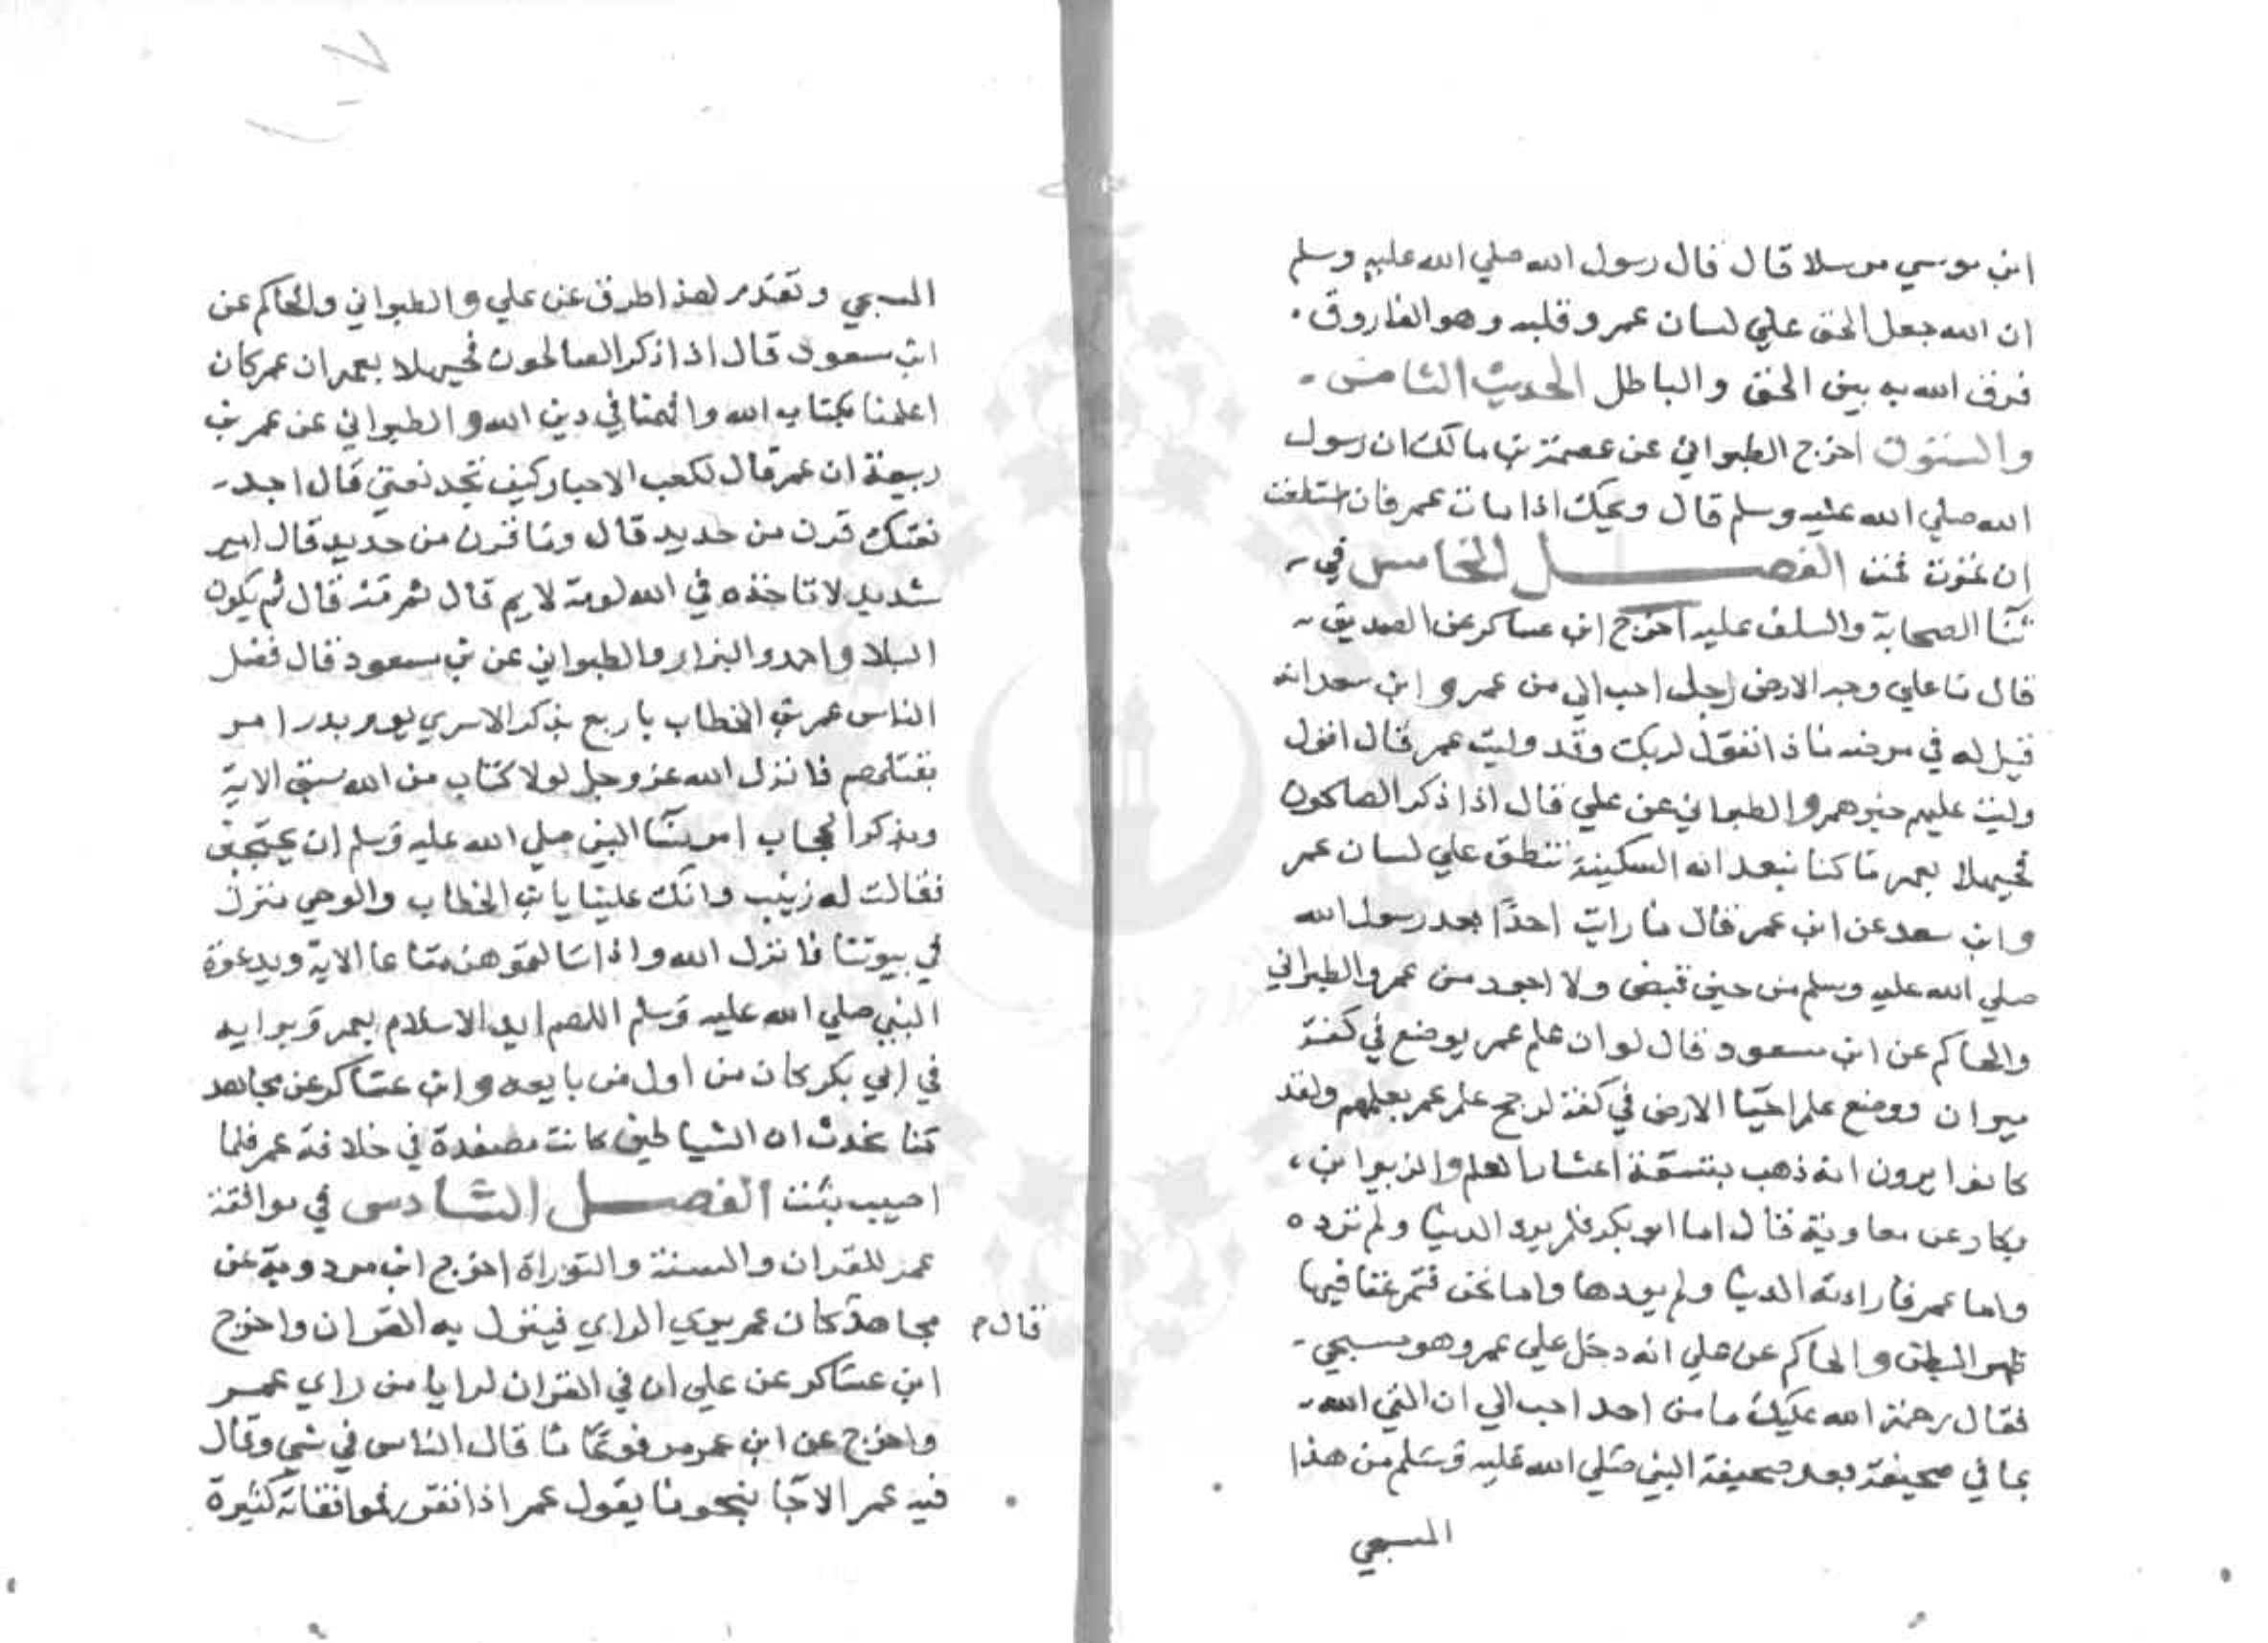 ابن موسي مرسلا قال قال رسول الله صلي الله عليه وسلم
ان الله جعل الحق علي لسان عمر وقلبه وهو الفاروق
فرق الله به بين الحق والباطل الحديث الثامن
والستون اخرج الطبراني عن عصمة بن مالك ان رسول
الله صلي الله عليه وسلم قال ويحك اذا مات عمر فان استطعت
ان تموت فمت الفصل الخامس في
ثنا الصحابة والسلف عليه اخرج ابن عساكر عن الصديق
قال ما علي وجه الارض رجل احب الي من عمر و ابن سعد انه
قيل له في مرضه ماذا تقول لربك وقد وليت عمر قال اقول
وليت عليهم خيرهم والطبراني عن علي قال اذا ذكر الصالحون
فحيهلا بعمر ما كنا نبعد ان السكينة تنطق علي لسان عمر
وابن سعد عن ابن عمر قال ما رايت احدا بعد رسول الله
صلي الله عليه وسلم من حين قبض ولا اجود من عمر والطبراني
والحاكم عن ابن مسعود قال لو ان علم عمر يوضع في كفة
ميزان ووضع علم احيا الارض في كفة لرجح علم عمر بعلمهم ولقد
كانوا يرون انه ذهب بتسعة اعشار العلم والزبير ابن
بكار عن معاوية قال اما ابو بكر فلم يرد الدنيا ولم ترده
واما عمر فارادته الدنيا ولم يردها واما نحن فتمرغنا فيها
ظهر البطن و الحاكم عن علي انه دخل علي عمر وهو مسجي
فقال رحمة الله عليك ما من احد احب الي ان القي الله
بما في صحيفة بعد صحيفة النبي صلي الله عليه وسلم من هذا
المسجي
المسجي وتقدم لهذا طرق عن علي والطبراني والحاكم عن
ابن سعود قال اذا ذكر الصالحون فحيهلا بعمر ان عمر كان
اعلمنا بكتاب الله وافهمنا في دين الله والطبراني عن عمر بن
ربيعة ان عمر قال لكعب الاحبار كيف تجد نعتي قال اجد
نعتك قرن من حديد قال وما قرن من حديد قال امير
شديد لا تاخذه في الله لومة لايم قال ثم مه قال ثم يكون
البلا واحمد والبزار والطبراني عن بن مسعود قال فضل
الناس عمر بن الخطاب باربع بذكر الاسري يوم بدر امر
بقتلهم فانزل الله عز وجل لولا كتاب من الله سبق الاية
وبذكر الحجاب امر نسا النبي صلي الله عليه وسلم ان يحتجبن
فقالت له زينب وانك علينا يا بن الخطاب والوحي ينزل
في بيوتنا فانزل الله واذا سالتموهن متاعا الاية وبدعوة
النبي صلي الله عليه وسلم اللهم ايد الاسلام بعمر وبرايه
في ابي بكر كان من اول من بايعه و ابن عساكر عن مجاهد
كنا نحدث ان الشياطين كانت مصفدة في خلافة عمر فلما
اصيب بثت الفصل السادس في موافقة
عمر للقران والسنة والتوراة اخرج ابن مردوية عن
مجاهد قال كان عمر يري الراي فينزل به القران واخرج
ابن عساكر عن علي ان في القران لرايا من راي عمر
واخرج عن ابن عمر مرفوعا ما قال الناس في شي وقال
فيه عمر الا جا بنحو ما يقول عمر اذا تقرر فموافقاته كثيرة